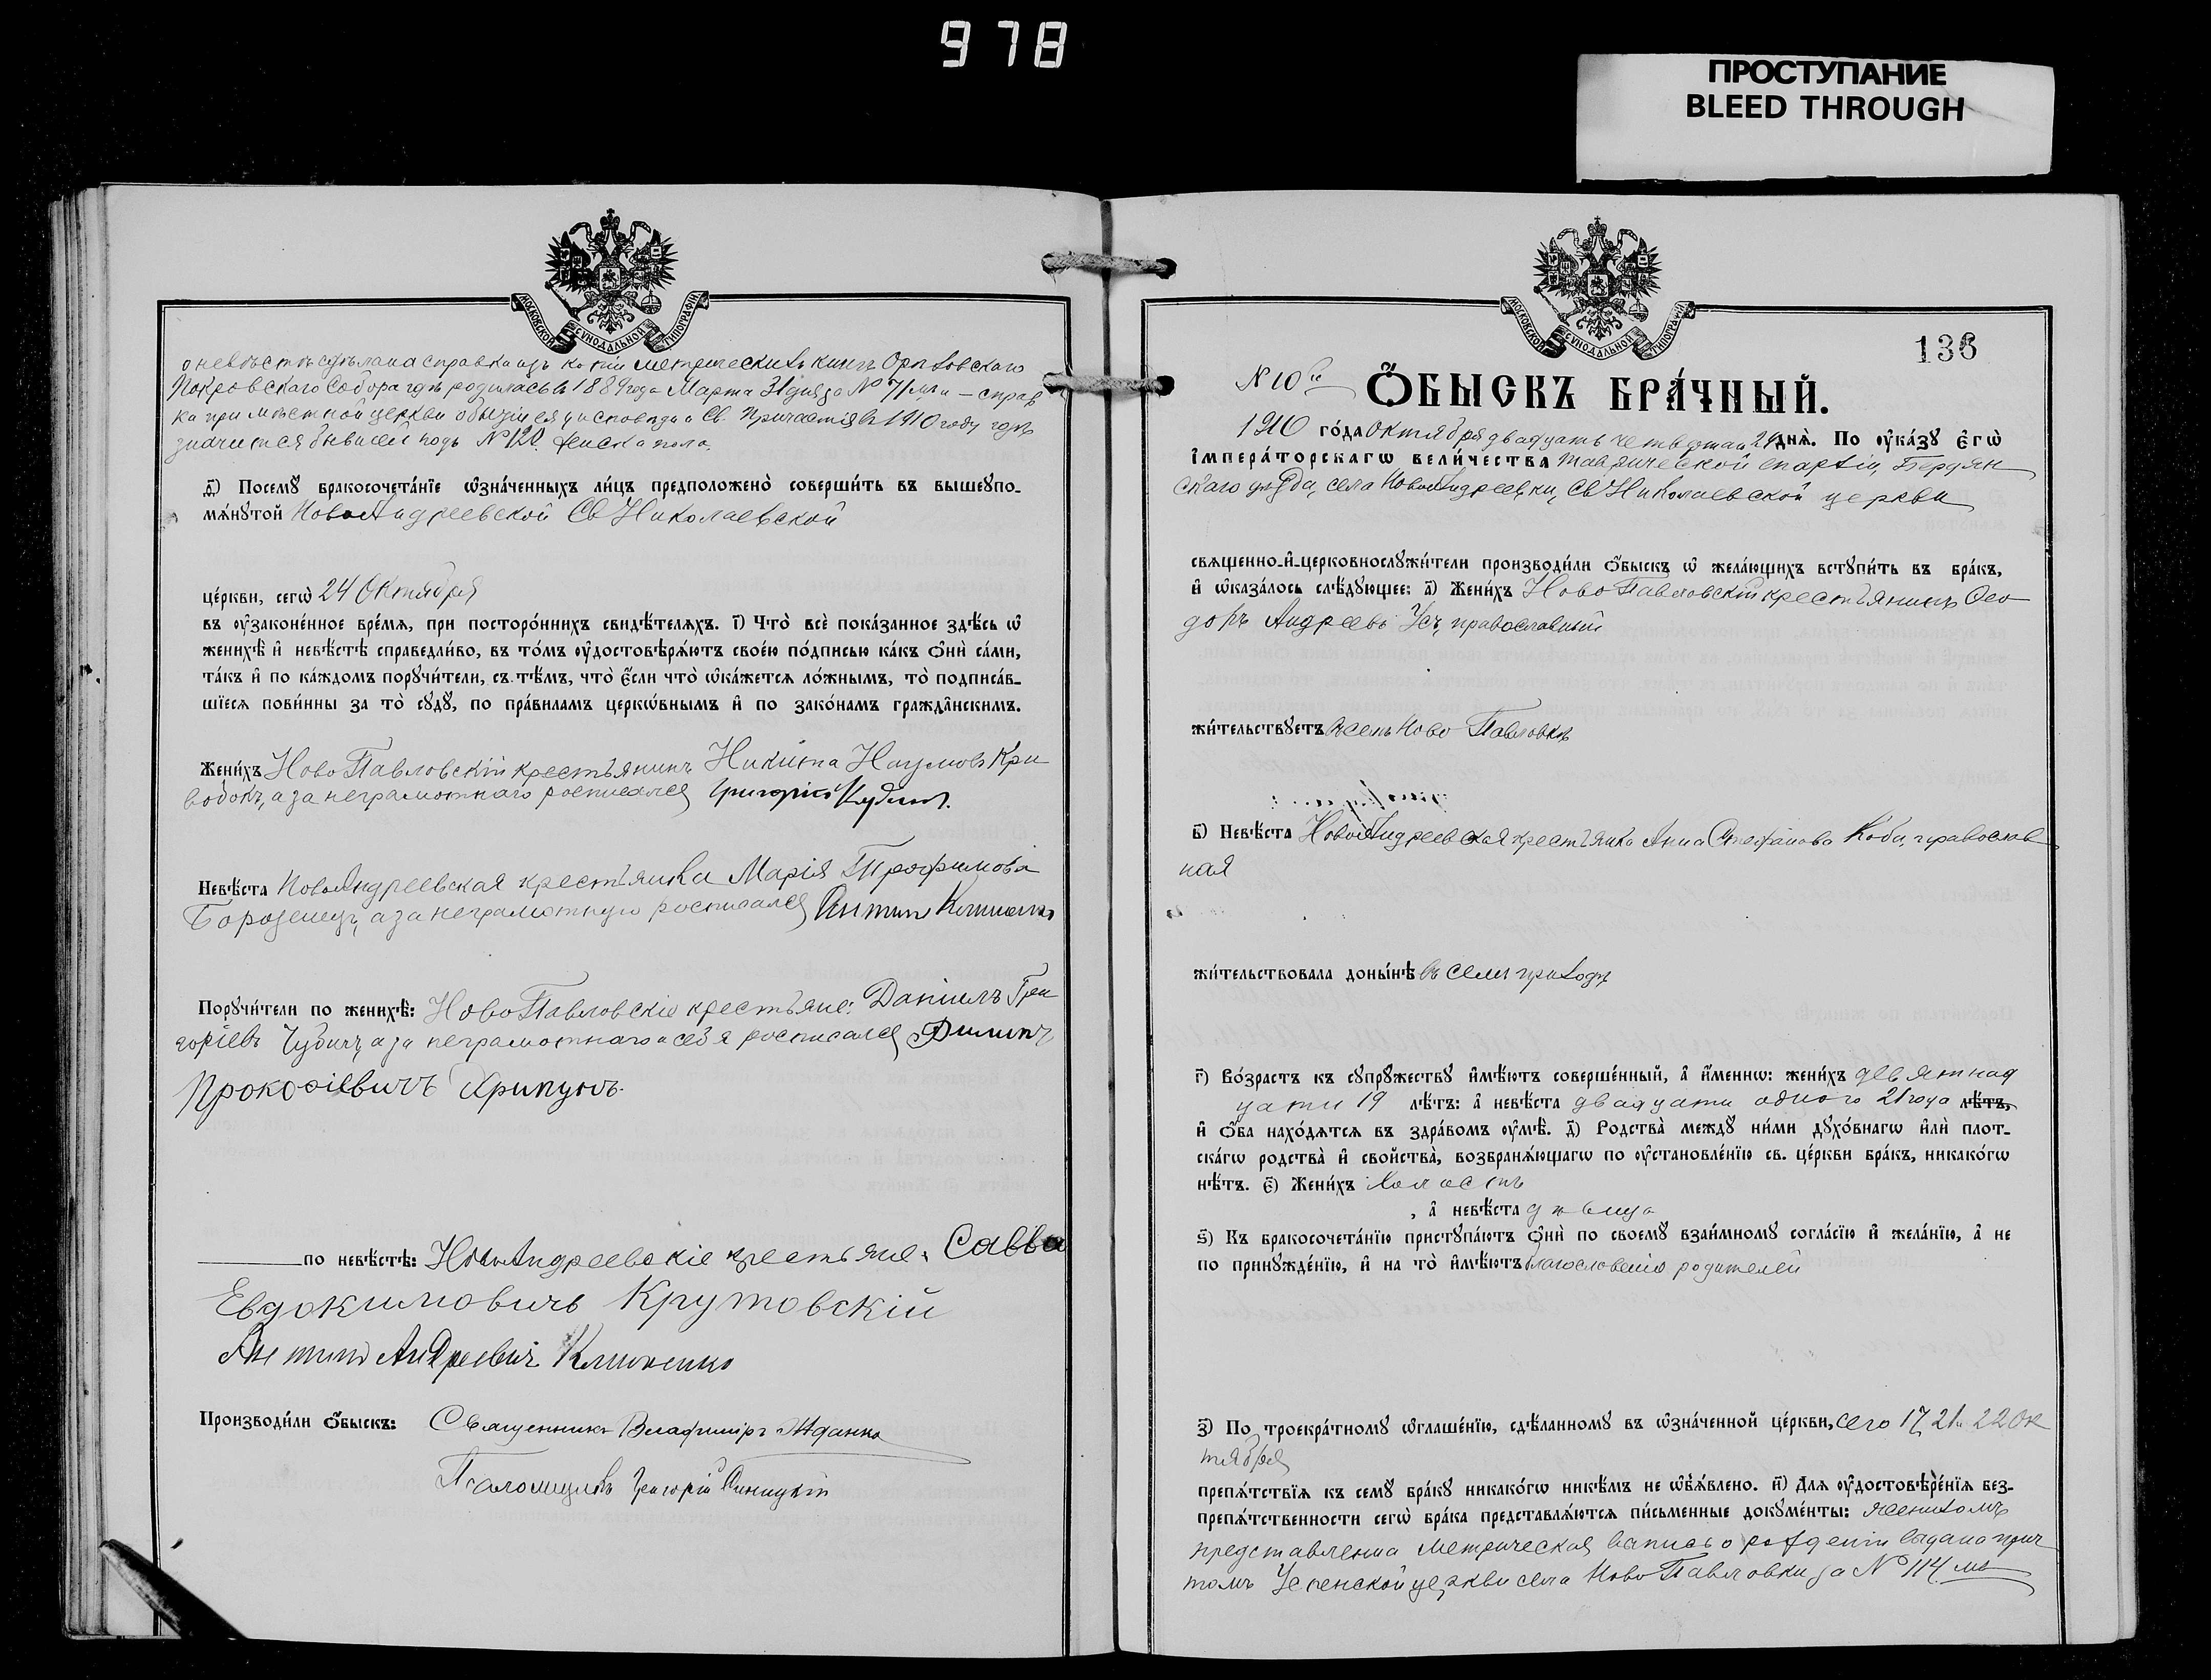 978
ПРОСТУПАНИЕ
BLEED THROUGH
МОСКОВСКОЙ СУНОДАЛЬНОЙ ТИПОГРАФІИ
о невѣстѣ сдѣлана справка изъ копіи метрическихъ книгъ Орѣховскаго
Покровскаго Собора гдѣ родилась въ 1889 года Марта 31 дня за № справ
ка при мѣстной церкви о бытіи ея у исповѣди и Св. Причастія въ 1910 году гдѣ
значится бывшей подъ № 120 женска пола.
д҃) Посемꙋ̀ бракосочета́нїе ѡ҆зна́ченныхъ ли́цъ предположено̀ соверши́ть въ вышеꙋпо-
мѧ́нꙋтой НовоАндреевской Св Николаевской
це́ркви, сегѡ̀ 24 Октября
въ ᲂу҆законе́нное вре́мѧ, при посторо́ннихъ свидѣ́телѧхъ. і҃) Что̀ всѐ пока́занное здѣ́сь ѡ҆
женихѣ̀ и҆ невѣ́стѣ справедли́во, въ то́мъ ᲂу҆достовѣрѧ́ютъ свое́ю по́дписью ка́къ ѻ҆нѝ са́ми,
та́къ и҆ по ка́ждомъ порꙋчи́тели, съ тѣ́мъ, что̀ є҆́сли что̀ ѡ҆ка́жетсѧ ло́жнымъ, то̀ подписа́в-
шїесѧ пови́нны за то̀ сꙋдꙋ̀, по пра́виламъ церкѡ́внымъ и҆ по зако́намъ гражда̂нскимъ.
Жени́хъ Ново Павловскій крестьянинъ Никита Наумовъ Кри
вобокъ, а за неграмотнаго росписался Григорій
Невѣ́ста НовоАндреевская крестьянка Марія Трофимова
Борозенецъ, а за неграмотную росписался Антипъ Клименко
Порꙋчи́тели по женихѣ̀: НовоПавловскіе крестьяне: Даніилъ Гри
горіевъ а за неграмотнаго и себя росписался
Прокофіевичъ Хрипунъ.
по невѣ́стѣ: НовоАндреевскіе крестьяне, Савва
Евдокимовичъ Крутовскій
Антипъ Андреевич Клименко
Производи́ли ѻ҆́быскъ: Священникъ Владимиръ Жданко
Псаломщикъ Григорій Синицкій
МОСКОВСКОЙ СУНОДАЛЬНОЙ ТИПОГРАФІИ
136
№ 10й
Ѻ҆́БЫСКЪ БРА́ЧНЫЙ.
1910 го́да Октября двадцать четвертаго 24 днѧ̀. По ᲂу҆ка́зꙋ є҆гѡ̀
і҆мпера́торскагѡ вели́чества Таврической епархіи, Бердян
скаго уѣзда, села НовоАндреевки, Св Николаевской церкви
свѧщенно-и҆-церковнослꙋжи́тели производи́ли ѻ҆́быскъ ѡ҆ жела́ющихъ встꙋпи́ть въ бра́къ,
и҆ ѡ҆каза́лось слѣ́дꙋющее: а҃) Жени́хъ Ново Павловскій крестьянинъ Ѳео
доръ Андреевъ Усъ, православный
жи́тельствꙋетъ въ селѣ Ново-Павловкѣ
в҃) Невѣ́ста НовоАндреевская крестьянка Анна Стефанова Коба, православ
ная
жи́тельствовала доны́нѣ въ семъ приходѣ
г҃) Во́зрастъ къ сꙋпрꙋ́жествꙋ и҆мѣ́ютъ соверше́нный, а҆ и҆́меннѡ: жени́хъ девятнад
цати 19 лѣ́тъ: а҆ невѣ́ста двадцати одного 21 года лѣ́тъ,
и҆ ѻ҆́ба нахо́дѧтсѧ въ здра́вомъ ᲂу҆мѣ̀. д҃) Родства̀ междꙋ ни́ми дꙋхо́внагѡ и҆лѝ плот-
ска́гѡ родства̀ и҆ свойства̀, возбранѧ́ющагѡ по ᲂу҆становле́нїю св. це́ркви бра́къ, никако́гѡ
нѣ́тъ. є҃) Жени́хъ холостъ
, а҆ невѣ́ста дѣвица
ѕ҃) Къ бракосочета́нїю пристꙋпа́ютъ ѻ҆нѝ по своемꙋ̀ взаи́мномꙋ согла́сїю и҆ жела́нїю, а҆ не
по принꙋжде́нїю, и҆ на то̀ и҆мѣ́ютъ благословеніе родителей
з҃) По троекра́тномꙋ ѡ҆глаше́нїю, сдѣ́ланномꙋ въ ѡ҆зна́ченной це́ркви, сего 17, 21 и 22 Ок
тября
препѧ́тствїѧ къ семꙋ̀ бра́кꙋ никако́гѡ никѣ́мъ не ѡ҆б̾ѧ́влено. и҃) Длѧ ᲂу҆достовѣре́нїѧ без-
препѧ́тственности сегѡ̀ бра́ка представлѧ́ютсѧ пи́сьменные докꙋме́нты: женихомъ
представленна метрическая выпись о рожденіи выдана прич
томъ Успенской церкви села НовоПавловки за № 114 мъ